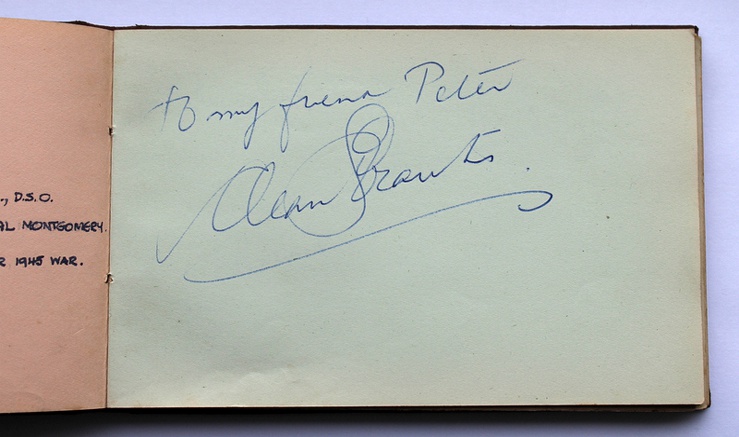 ., D.S.O.
AL MONTGOMERY.
R 1945 WAR.
to my friend Peter